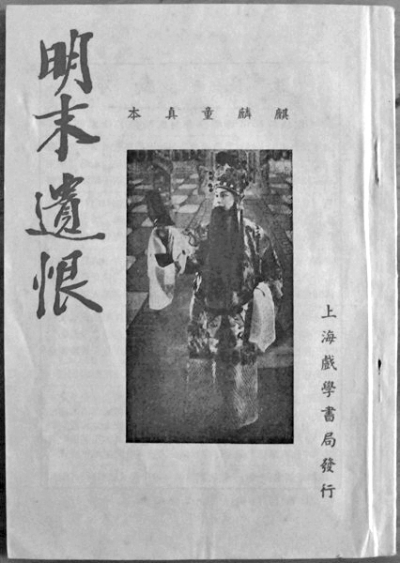 明末遺恨
麒麟童真本
上海戲學書局發行